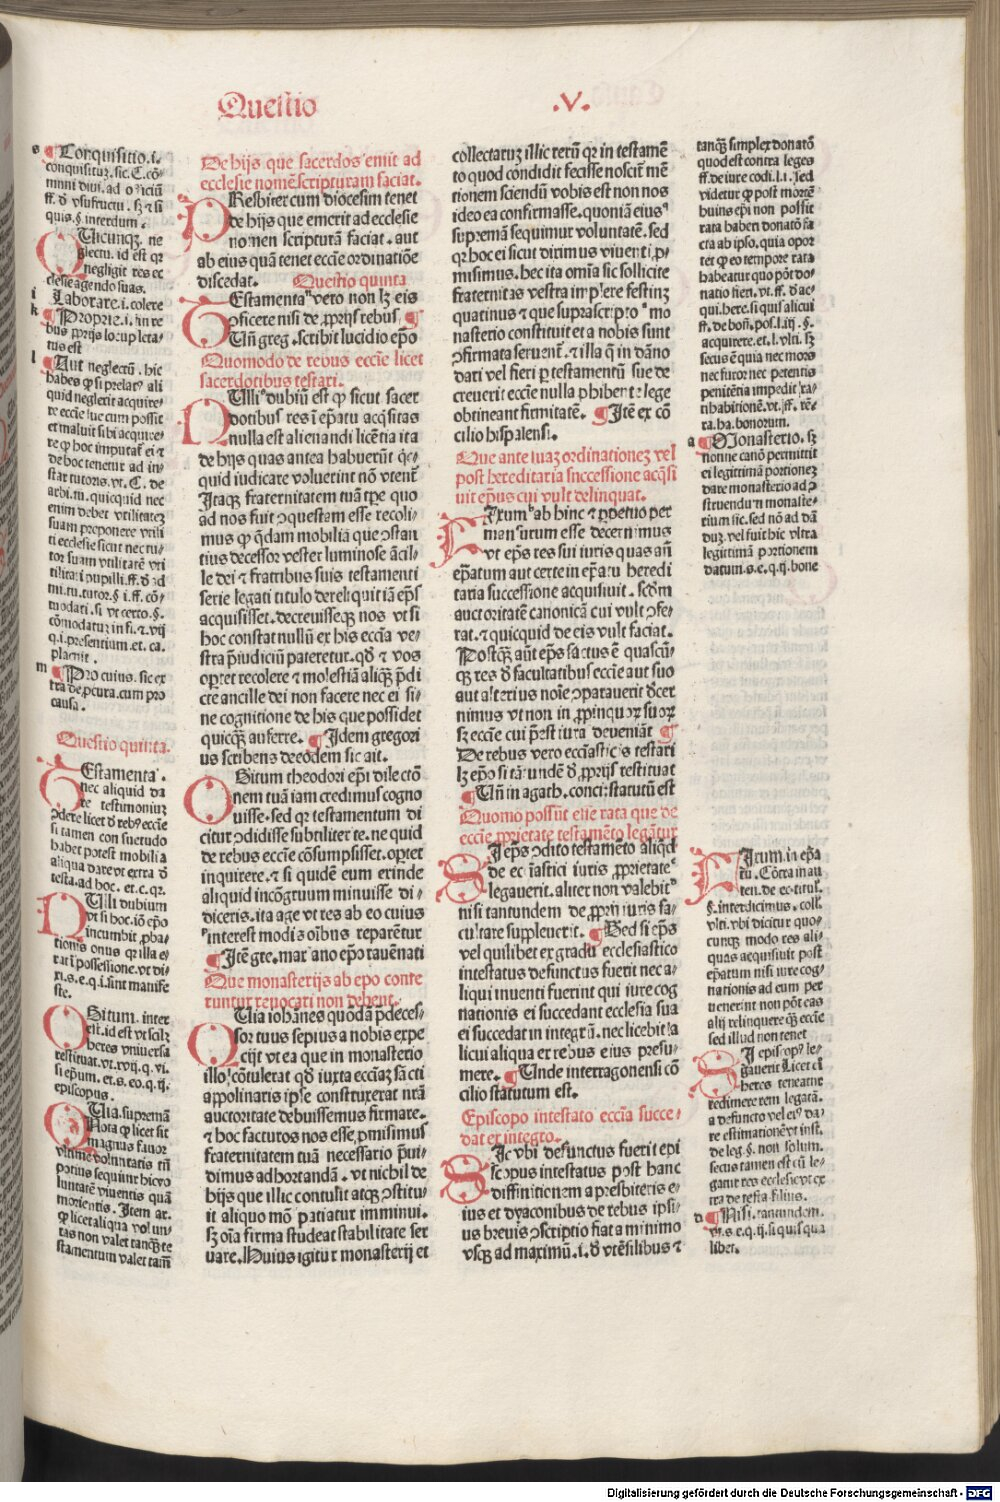 Questio
.V.
¶ Conquisitio.i.
conquisituꝫ. sic. C. cō-
muni diui. ad officiū
ff. ď vsufructu. sꝫ ⁊ si
quis. §. interdum.
Uicunqꝫ. ne
glectu. id est qꝛ
negligit res ec
clesie agendo suas.
i Laborare. i. colere
k ¶ Proprie. i. in re
bus ꝓprijs locupleta-
tus est
l ¶ Aut neglectū. hic
habes ꝙ si prelatꝰ ali
quid neglerit acquire-
re eccīe sue cum possit
et maluit sibi acquire-
re ꝙ hoc imputat̄ ei ⁊
de hoc tenetur ad in-
star tutoris. vt. C. de
arbi. tu. quicquid nec
enim debet vtilitateꝫ
suam preponere vtili
ti ecclesie sicut nec tu-
tor suam vtilitatē vti
litati pupilli. ff. ď ad
mi. tu. tutor. § i. ff. cō-
modati. si vt certo. §.
cōmodatuꝫ in fi. ⁊. vij
q. i. presentium. et. ca.
placuit.
m ¶ Pro cuius. sic ex
tra de ꝓcura. cum pro
causa.
Questio quinta.
Estamenta.
nec aliquid da
re testimoniuꝫ
ꝯdere licet ď rebꝰ eccīe
si tamen con suetudo
habet potest mobilia
aliqua dare vt extra ď
testa. ad hoc. et. c. qꝛ.
Ulli dubium
vt si hoc. iō ep̄o
incumbit ꝓba-
tionis onus qꝛ illa e-
rāt ī possessione. vt di-
xi. s. e. q. i. sunt manife
ste.
Situm. inter
est. id est vt scilꝫ
heres vniuersa
restituat. vt. xvij. q. vi.
si ep̄um. et. s. eo. q. ij.
episcopus.
Uia. supremā
Nota ꝙ licet sit
magnus fauor
vltime voluntatis tū
potius sequimr hic vo
luntatē viuentis quā
morientis. Item ar.
ꝙ licet aliqua volun-
tas non valet tanqꝫ te
stamentum valet tam̄
De hijs que sacerdos emit ad
ecclesie nomē scripturam faciat.
Resbiter cum diocesim tenet
de hijs que emerit ad ecclesie
nomen scripturā faciat. aut
ab eius quā tenet eccīe ordinatiōe
discedat. Questio quinta
Estamentaꝰ vero non lꝫ eis
ꝯficere nisi de ꝓprijs rebus ¶
Un̄ greg. scribit lucidio ep̄o
Quomodo de rebus eccīe licet
sacerdotibus testari.
Ulliꝰ dubiū est ꝙ sicut sacer
dotibus res ī ep̄atu acq̄sitas
nulla est alienandi licētia ita
de hijs quas antea habuerūt qc-
quid iudicare voluerint nō vtent̄
Itaqꝫ fraternitatem tuā tꝑe quo
ad nos fuit ꝯquestam esse recoli-
mus ꝙ q̄dam mobilia que ꝯstan
tius decessor vester luminose ācil-
le dei ⁊ fratribus suis testamenti
serie legati titulo dereliquit iā ep̄s
acquisisset. decreuisseqꝫ nos vt si
hoc constat nullū ex his eccīa ve-
stra p̄iudiciū pateretur. qď ⁊ vos
oꝑtet recolere ⁊ molestiā aliqꝫ p̄di
cte ancille dei non facere nec ei si-
ne cognitione de his que possidet
quicqꝫ auferre. ¶ Idem gregori
us scribens de eodem sic ait.
Situm theodori ep̄i dilectō
nem tuā iam credimus cogno
uisse. sed qꝛ testamentum di
citur ꝯdidisse subtiliter te. ne quid
de rebus eccīe cōsumpsisset. oꝑtet
inquirere. ⁊ si quidē eum exinde
aliquid incōgruum minuisse di-
diceris. ita age vt res ab eo cuius
interest modis oībus reparētur
¶ Itē gre. mariano ep̄o rauēnati
Que monasterijs ab epo confe
runtur reuocari non debent.
Uia iohānes quōdā p̄deces-
sor tuus sepius a nobis expe
cijt vt ea que in monasterio
illo cōtulerat qď iuxta eccīaꝫ sācti
appolinaris ip̄se construxerat nr̄a
auctoritate debuissemus firmare.
⁊ hoc facturos nos esse ꝓmisimus
fraternitatem tuā necessario p̄ui-
dimus adhortandā. vt nichil de
hijs que illic contulit atqꝫ ꝯstitu-
it aliquo mō patiatur imminui.
sꝫ oīa firma studeat stabilitate ser
uare. Huius igitur monasterij et
collectaruꝫ illic rerū qꝛ in testamē
to quod condidit fecisse noscit̄ mē
tionem sciendū vobis est non nos
ideo ea confirmasse. quoniā eiusꝰ
supremā sequimur voluntatē. sed
qꝛ hoc ei sicut dirimus viuenti ꝓ-
misimus. hec ita om̄ia sic sollicite
fraternitas vestra implere festinꝫ
quatinus ⁊ que suprascripto mo
nasterio constituit et a nobis sunt
ꝯfirmata seruent̄. ⁊ illa q̄ in dāno
dati vel fieri ꝑ testamentū sue de
creuerit eccīe nulla ꝓhibente lege
obtineant firmitatē. ¶ Itē ex cō
cilio hispalensi.
Que ante suaꝫ ordinationeꝫ vel
post hereditaria snccessione acq̄si
uit ep̄us cui vult delinquat.
Ixum ab hinc ⁊ ꝑpetuo per
mansurum esse decernimus
vt ep̄s res sui iuris quas an̄
ep̄atum aut certe in ep̄atu heredi
taria successione acquisiuit. secd̄m
auctoritatē canonicā cui vult ꝯfe-
rat. ⁊ quicquid de eis vult faciat.
Postqꝫ aut̄ ep̄s factus ē quascū-
qꝫ res ď facultatibus eccīe aut suo
aut alterius noīe ꝯparauerit ďcer
nimus vt non in ꝓpinquoꝝ suoꝝ
sꝫ eccīe cui p̄est iura deueniāt ¶
De rebus vero eccīasticis testari
lꝫ ep̄o si tātundē ď ꝓprijs restituat
¶ Un̄ in agath. conci: statutū est
Quomo possūt esse rata que de
eccīe ꝓprietate testamēto legātur
I ep̄s ꝯdito testamēto aliqd̄
de ecclīastici iuris ꝓprietate
legauerit. aliter non valebit
nisi tantundem de ꝓprij iuris fa-
cultate suppleuerit. ¶ Sed si ep̄s
vel quilibet ex gradu ecclesiastico
intestatus defunctus fuerit nec a-
liqui inuenti fuerint qui iure cog
nationis ei succedant ecclesia sua
ei succedat in integrū. nec licebit a
licui aliqua ex rebus eius presu-
mere. ¶ Unde interragonensi cō
cilio statutum est.
Episcopo intestato eccīa succe-
dat ex integro.
Ic vbi defunctus fuerit epi
scopus intestatus post hanc
diffinitionem a presbiteris e-
ius et dyaconibus de rebus ipsi-
us breuis ꝯscriptio fiat a minimo
vsqꝫ ad maximū. i. ď vtēsilibus ⁊
tanqꝫ simplex donatō
quod est contra leges
ff. de iure codi. l. i. sed
videtur ꝙ post mortē
huius ep̄i non possit
rata haberi donatō fa
cta ab ipso. quia opor
tet ꝙ eo tempore rata
habeatur quo pōt do-
natio fieri. vt. ff. ď ac-
qui. here. si quis alicui
ff. de bon. pos. l. iij. §.
acquirere. et. l. vlti. sꝫ
secus ē quia nec mors
nec furor nec petentis
penitētia impedit ra-
tihabitionē. vt. ff. rē-
ra. ha. bonorum.
a ¶ Monasterio. sꝫ
nonne canō permittit
ei legittimā portioneꝫ
dare monasterio ad ꝯ
struendum monaste-
rium sic. sed nō ad dā
duꝫ. vel fuit hic vltra
legittimā portionem
datum. s. e. q. ij. bone
Ixum. in ep̄a
tu. Cōtra in au
ten. de eccītitul.
§. interdicimus. coll.
vlti. vbi dicitur quo-
cunqꝫ modo res ali-
quas acquisiuit post
ep̄atum nisi iure cog
nationis ad eum per
uenerint non pōt eas
alij relinquere qꝫ eccīe
sed illud non tenet
I episcopꝰ le-
gauerit Licet cū
heres teneatur
redimere rem legatā.
a defuncto vel eiꝰ da-
re estimationē vt inst.
de leg. §. non solum.
secus tamen est cū le-
gatur res ecclesie vt ex
tra de testa filius.
n ¶ Nisi. tantundem.
vt. s. e. q. ij. si quis qua
libet.
Digitalisierung gefördert durch die Deutsche Forschungsgemeinschaft - DFG